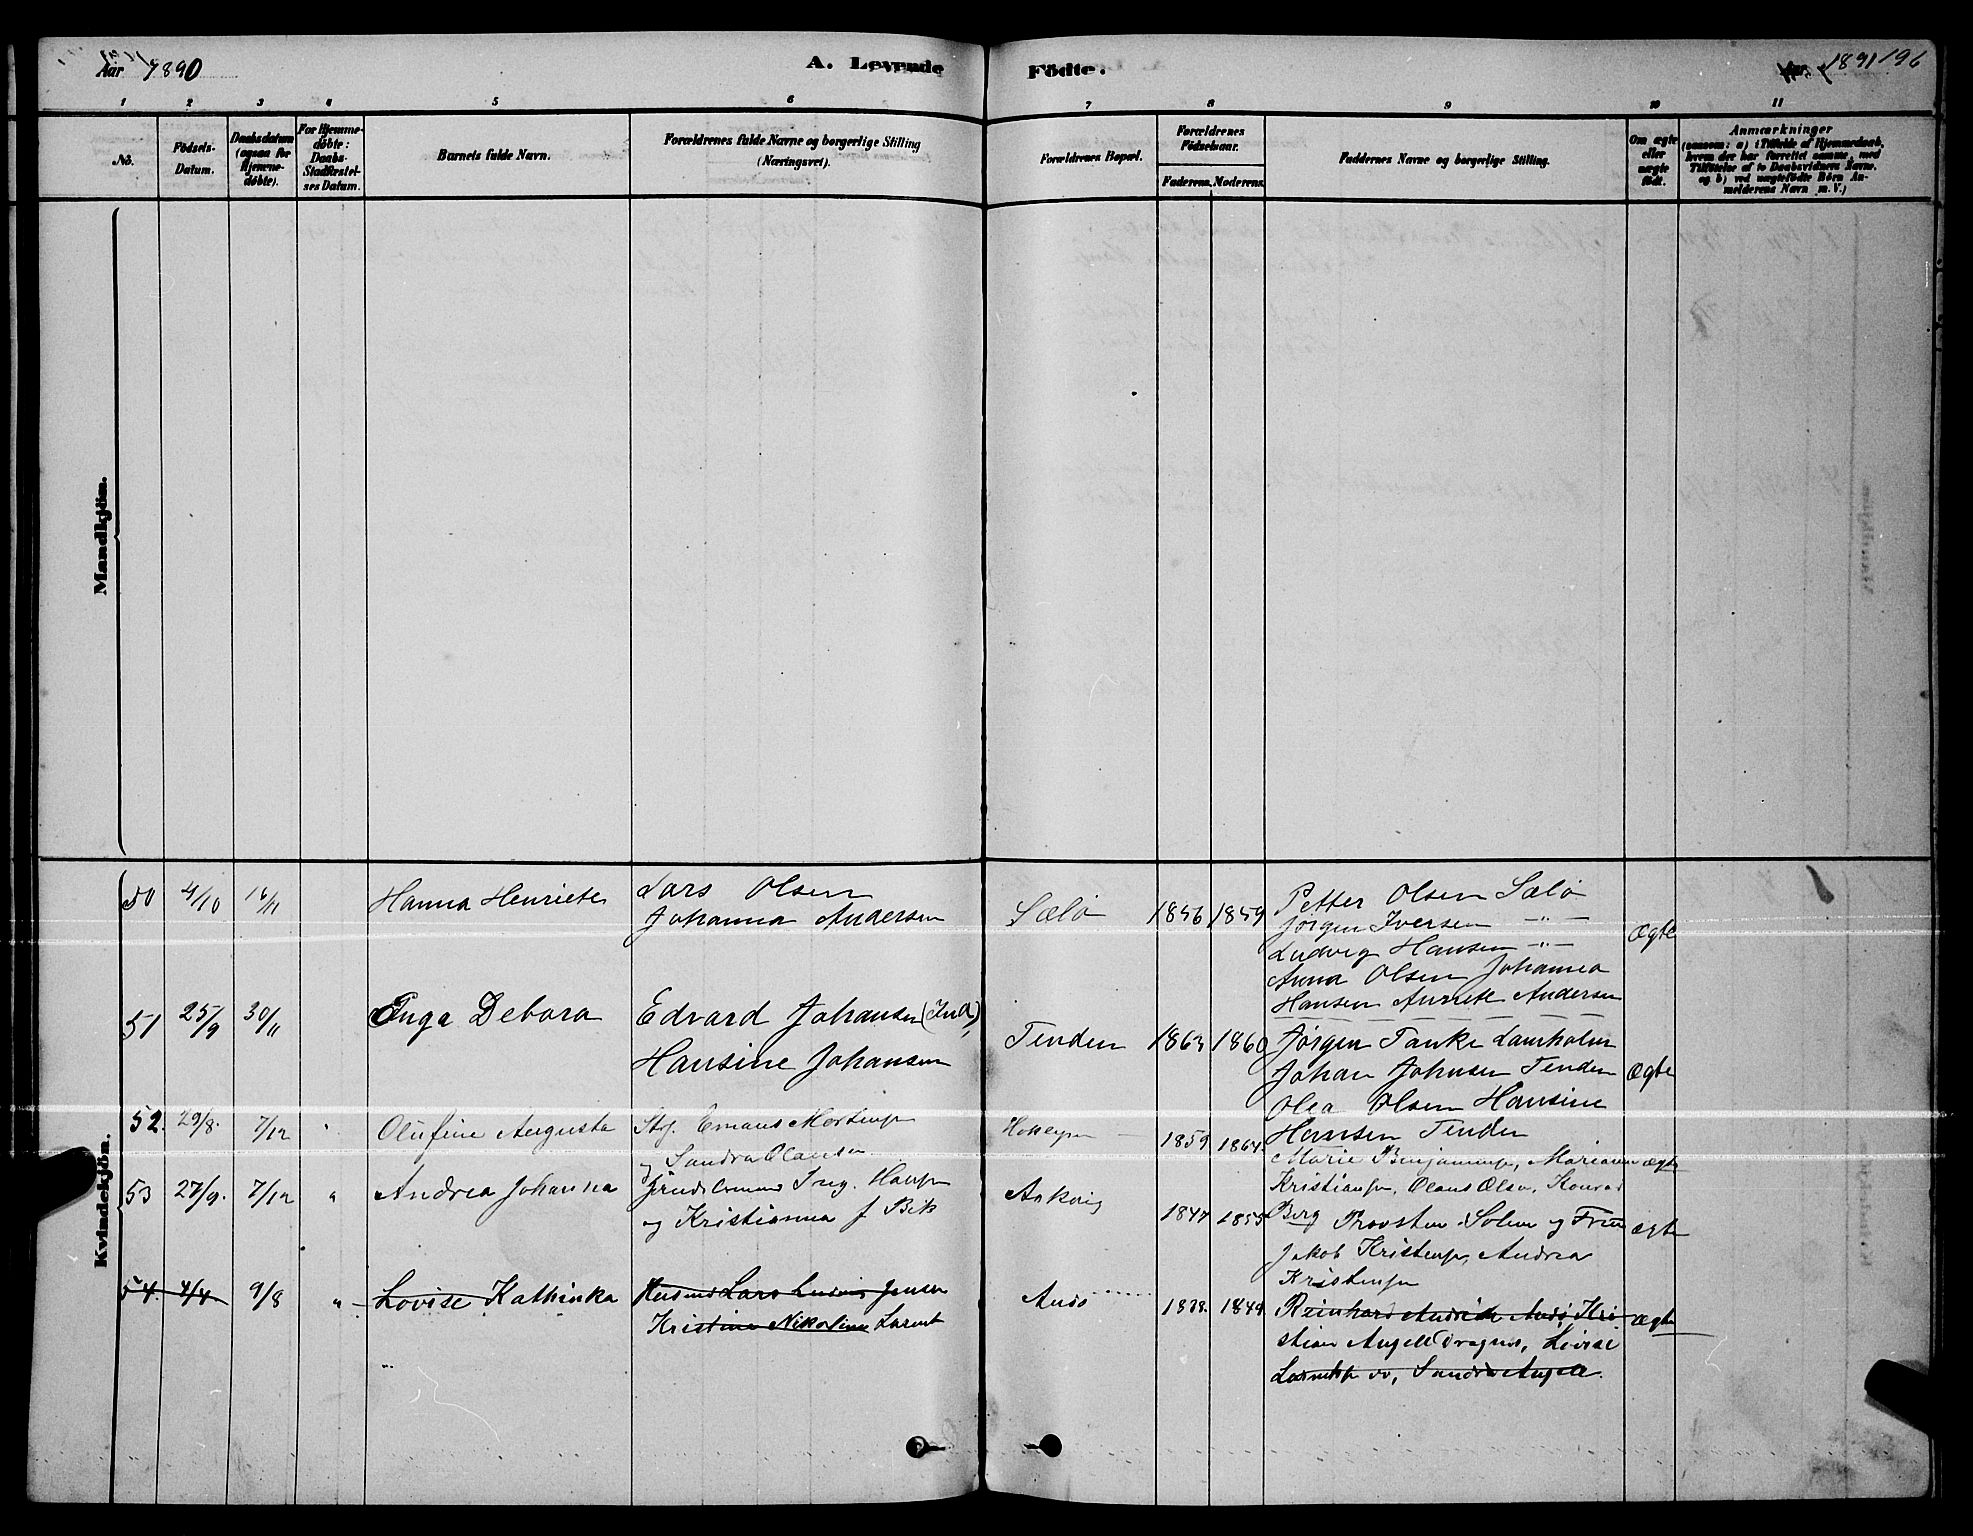 Aar 1890
A. Levende
Fødte.
1891 196
1 2 3 4 5 6 7 8 9 10 11
No.
Fødsels-
Datum.
Daabsdatum
(ogsaa for
Hjemme-
døbte).
For Hjemme-
døbte:
Daabs-
Stadfæstel-
ses Datum.
Barnets fulde Navn.
Forældrenes fulde Navne og borgerlige Stilling
(Næringsvei).
Forældrenes Bopæl.
Forældrenes
Fødselsaar.
Faderens. Moderens.
Faddernes Navne og borgerlige Stilling.
Om ægte
eller
uægte
født.
Anmærkninger
(saasom: a) i Tilfælde af Hjemmedaab,
hvem der har forrettet samme, med
Tilføielse af to Daabsvidners Navne.
og b) ved uægtefødte Børn An-
melderens Navn m. V.)
Mandkjøn.
Kvindekjøn.
50 4/10 16/11 Hanna Henriete
Lars Olsen
Johanna Andersen
Sælø 1856 1859
Petter Olsen Sælø
Jørgen Iversen —"—
Ludvig Hansen —"—
Anna Olsen Johanna
Hansen Anriete Andersen
Ægte
51 25/9 30/11 Inga Debora
Edvard Johansen (Ind)
Hansine Johansen
Tenden 1863 1860
Jørgen Tanke
Johan Johnsen Tenden
Olea Olsen Hansine
Hansen Tenden
Ægte
52. 29/8. 7/12 " Olufine Augusta
Emans Mortensen
og Sandra Olausen
1859 1864.
Marie Benjaminsen, Mariann
Kristiansen, Olaus Olsen, Konrad
Berg
ægte
53 27/9. 7/12 " Andrea Johanna
Ing. Hansen
og Kristianna f. Bek
1847 1855
Provsten Solem og Frue
Jakob Kristensen, Andrea
Kristensen
ægte
54. 4/4 9/8 " Lovise Kathinka
Lars Jensen
Kristine Nikoline
Andø 1838. 1849
Reinhard Andø, Kri-
stian Angell Lovise
Sandra Angell.
ægte